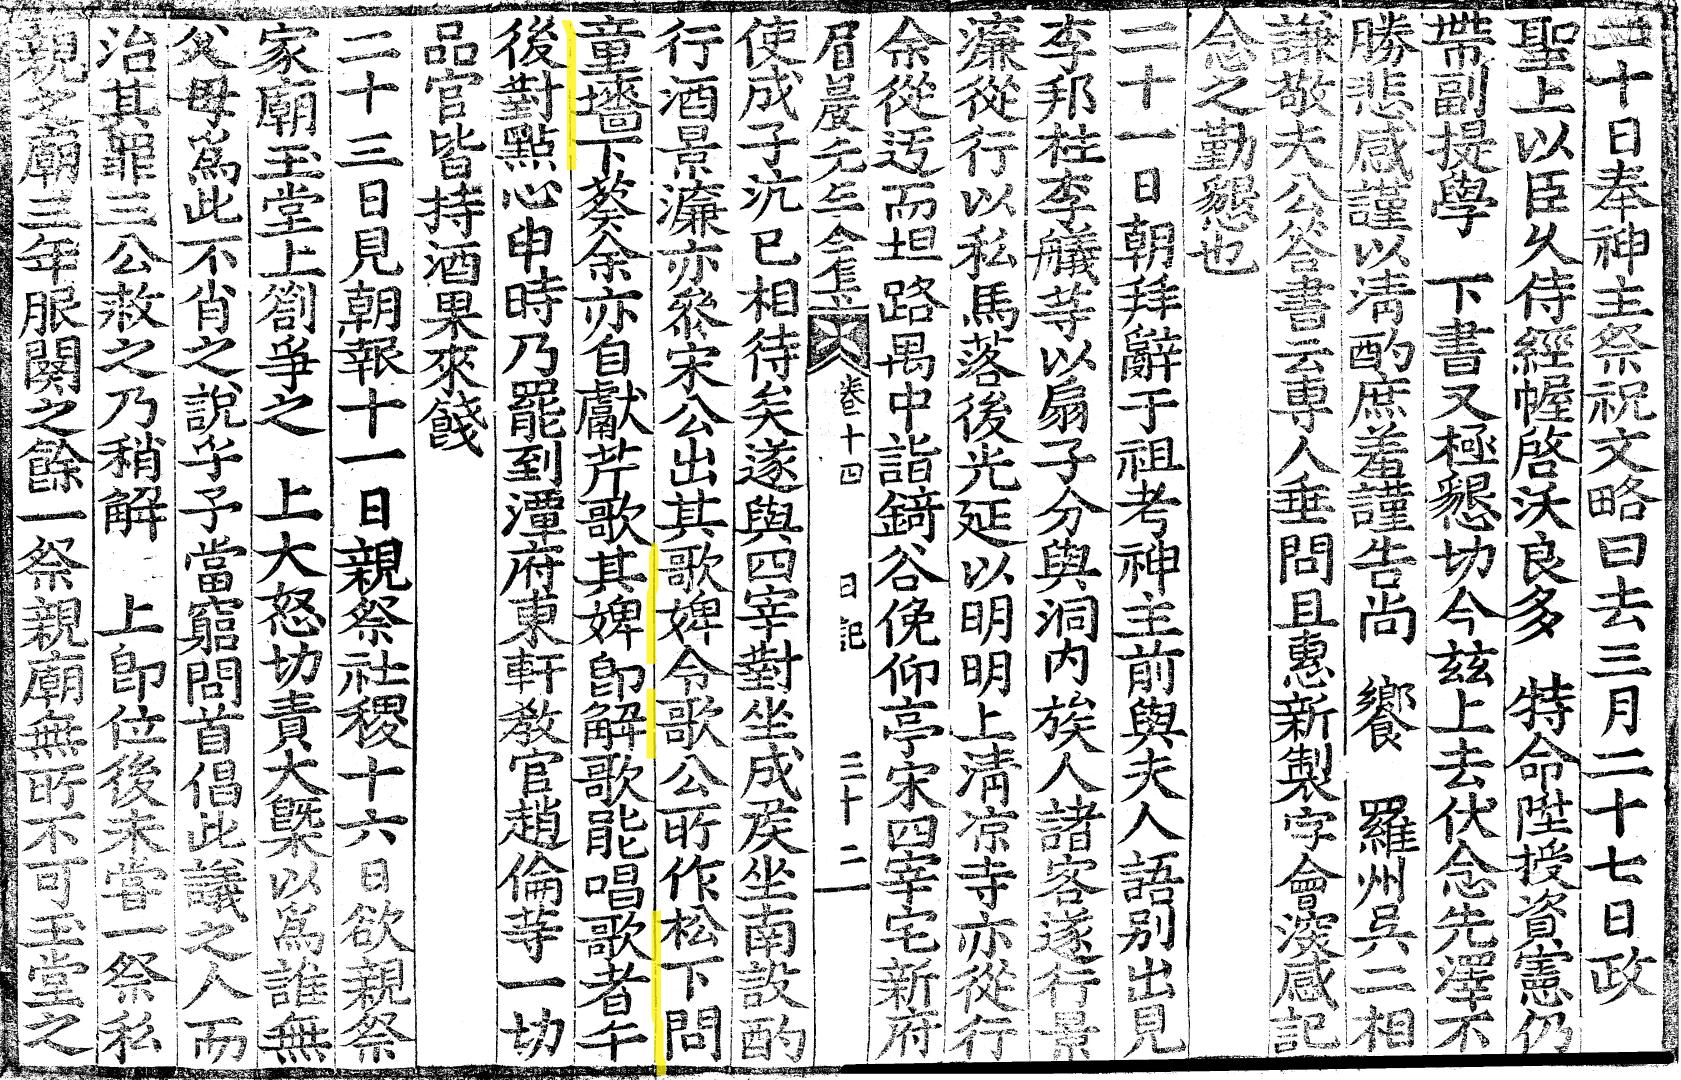 二十日奉神主祭祝文略曰去三月二十七日政
聖上以臣久侍經幄啓沃良多 特命陞授資憲仍
帶副提學 下書又極懇切今玆上去伏念先澤不
勝悲感謹以淸酌庶羞謹告尙 饗 羅州吳二相
謙敬夫公答書云專人垂問且惠新製字會深感記
念之勤懇也
二十一日朝拜辭于祖考神主前與夫人語別出見
李邦柱李艤等以扇子分與洞內族人諸客遂行景
濂從行以私馬落後光延以明明上淸凉寺亦從行
余從迃而坦路禺中詣錡谷俛仰亭宋四宰宅新府
眉巖先生全集
卷十四 日記 二十二
使成子沆已相待矣遂與四宰對坐成侯坐南設酌
行酒景濂亦參宋公出其歌婢令歌公所作松下問
童墻下葵余亦自獻芹歌其婢卽解歌能唱歌者午
後對點心申時乃罷到潭府東軒敎官趙倫等一切
品官皆持酒果來餞
二十三日見朝報十一日親祭社稷十六日欲親祭
家廟玉堂上劄爭之 上大怒切責大槩以爲誰無
父母爲此不肖之說乎予當窮問首倡此議之人而
治其罪三公救之乃稍解 上卽位後未嘗一祭私
親之廟三年服闋之餘一祭親廟無所不可玉堂之